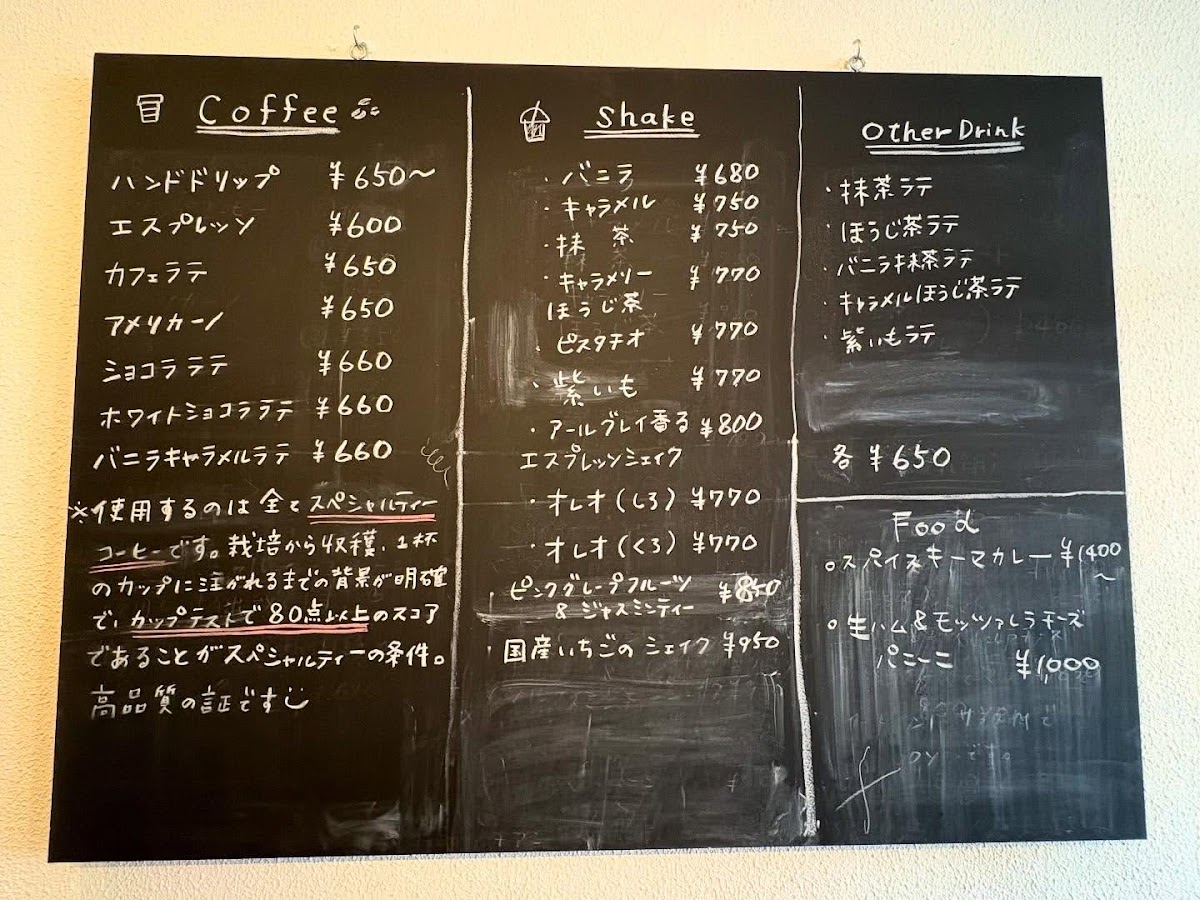 Coffee
ハンドドリップ ¥650〜
エスプレッソ ¥600
カフェラテ ¥650
アメリカーノ ¥650
ショコララテ ¥660
ホワイトショコララテ ¥660
バニラキャラメルラテ ¥660
※使用するのは全てスペシャルティー
コーヒーです。栽培から収穫、1杯
のカップに注がれるまでの背景が明確
で、カップテストで80点以上のスコア
であることがスペシャルティーの条件。
高品質の証です
Shake
・バニラ ¥680
・キャラメル ¥750
・抹茶 ¥750
・キャラメリー ¥770
ほうじ茶
・ピスタチオ ¥770
・紫いも ¥770
・アールグレイ香る ¥800
エスプレッソシェイク
・オレオ(しろ) ¥770
・オレオ(くろ) ¥770
・ピンクグレープフルーツ ¥850
& ジャスミンティー
・国産いちごのシェイク ¥950
Other Drink
・抹茶ラテ
・ほうじ茶ラテ
・バニラ抹茶ラテ
・キャラメルほうじ茶ラテ
・紫いもラテ
各 ¥650
Food
○スパイスキーマカレー ¥1400
〜
○生ハム&モッツァレラチーズ
パニーニ ¥1,000